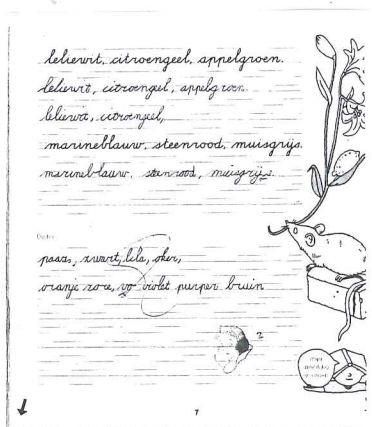 leliewit, citroengeel, appelgroen.
leliewit, citroengeel, appelgroen.
leliewit, citroengeel,
marineblauw, steenrood, muisgrijs.
marineblauw. steenrood, muisgrijs.
paars, zwart, lila, oker,
oranje roze, vo violet purper bruin
2
7